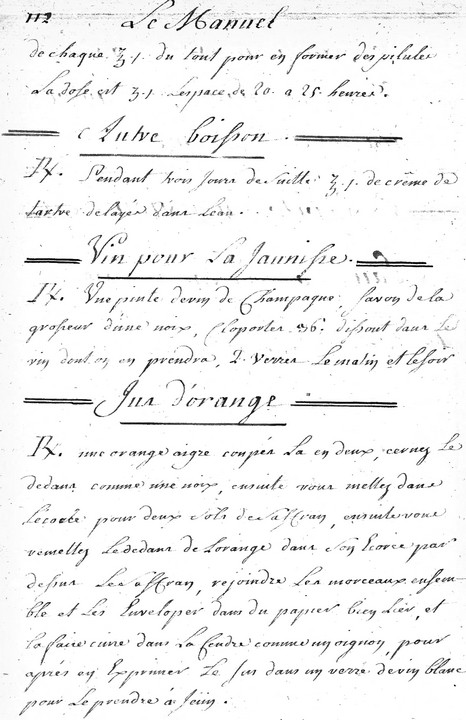 112 Le Manuel
de chaque ʒ. 1. du tout pour en former des pilules
La dose est ʒ. 1. Lespace de 20. a 25 heures.
Autre boisson
℞. Pendant trois Jours de suitte ʒ. 1. de crême de
tartre delayée dans Leau.
Vin pour La Jaunisse.
℞. Une pinte de vin de Champagne, Savon de la
grosseur d'une noix, Cloportes 36. dissout dans Le
vin dont on en prendra, 2. verres Le matin et le soir
Jus d'orange
℞. une orange aigre coupés La en deux, cernez Le
dedans comme une noix, ensuite vous mettez dans
Lecorce pour deux sols de saffran, ensuite vous
remettez Le dedans de Lorange dans son Ecorce par
dessus Le saffran, rejoindre Les morceaux ensem-
ble et Les Enveloper dans du papier bien Lier, et
la faire cuire dans La Cendre comme un oignon, pour
aprés en Exprimer Le Jus dans un verre de vin blanc
pour Le prendre à Jeun.